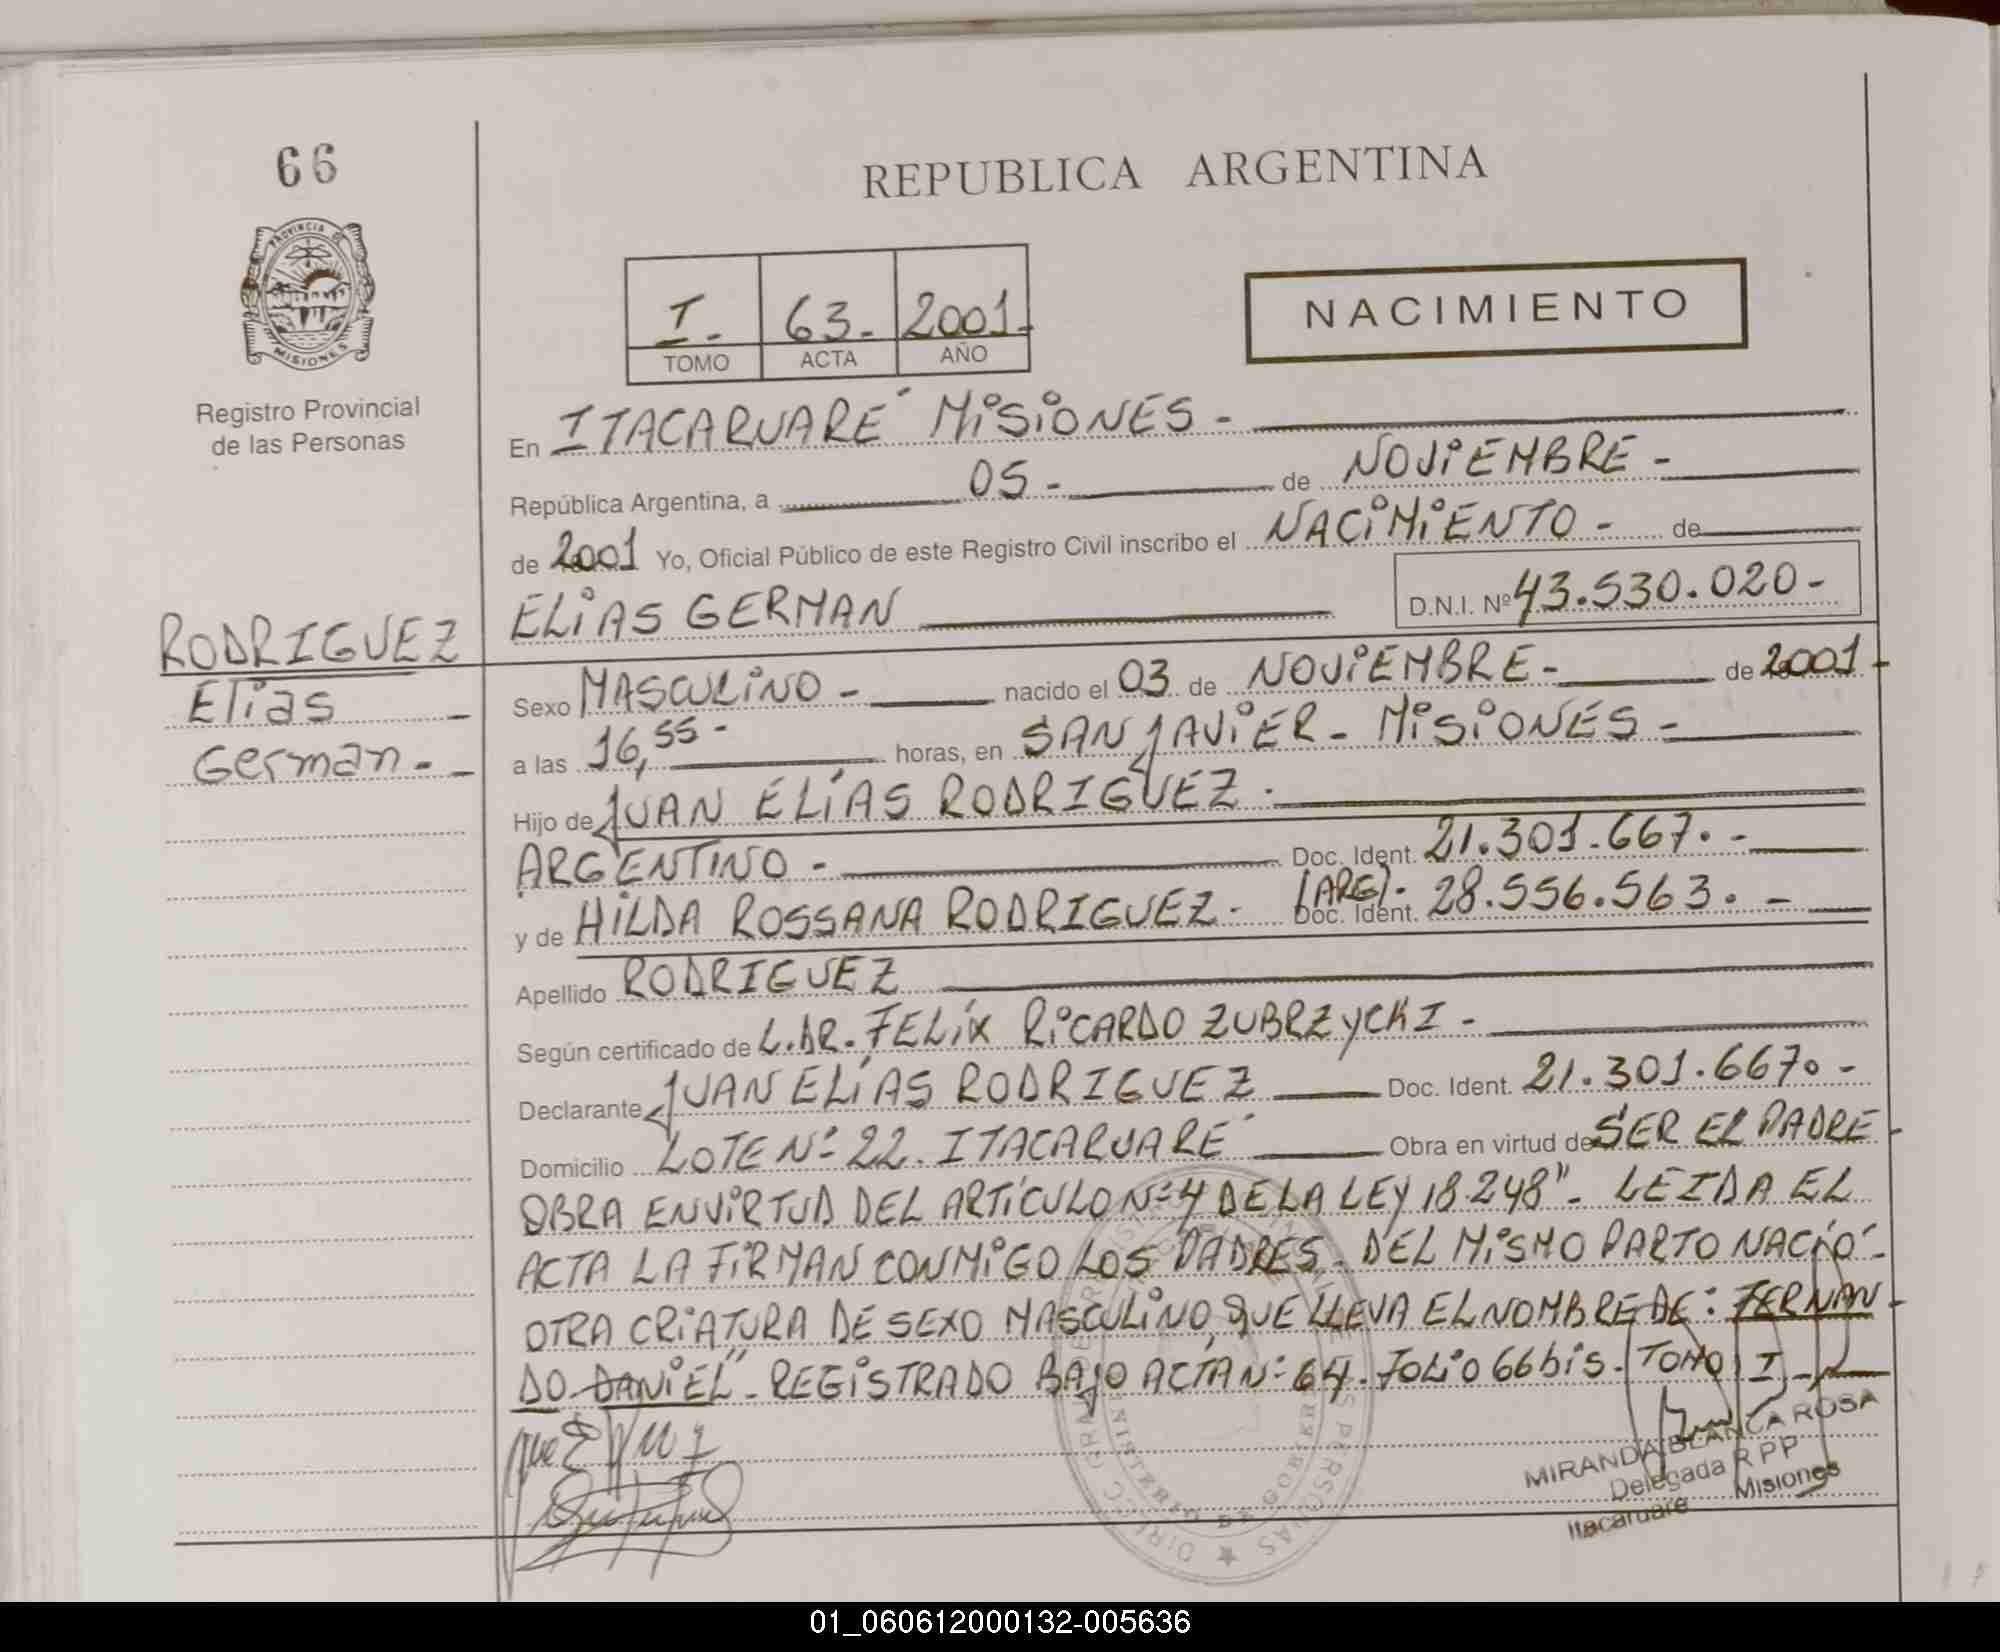 66
REPUBLICA ARGENTINA
PROVINCIA DE
MISIONES
Registro Provincial
de las Personas
I- 63- 2001-
TOMO ACTA AÑO
NACIMIENTO
En ITACARUARÉ MISIONES -
República Argentina, a 05 - de NOVIEMBRE -
de 2001 Yo, Oficial Público de este Registro Civil inscribo el NACIMIENTO - de
ELIAS GERMAN D.N.I. Nº 43.530.020-
RODRIGUEZ
Elias -
German. -
Sexo MASCULINO - nacido el 03 de NOVIEMBRE - de 2001 -
a las 16,55 - horas, en SAN JAVIER - MISIONES -
Hijo de JUAN ELÍAS RODRIGUEZ.
ARGENTINO - Doc. Ident. 21.301.667. -
y de HILDA ROSSANA RODRIGUEZ - (ARG). Doc. Ident. 28.556.563. -
Apellido RODRIGUEZ
Según certificado de L.DR. FELÍX RICARDO ZUBRZYCKI -
Declarante JUAN ELÍAS RODRIGUEZ Doc. Ident. 21.301.667. -
Domicilio LOTE Nº 22. ITACARUARÉ Obra en virtud de SER EL PADRE -
OBRA EN VIRTUD DEL ARTÍCULO Nº 4 DE LA LEY 18.248" - LEIDA EL
ACTA LA FIRMAN CONMIGO LOS PADRES. DEL MISMO PARTO NACIÓ -
OTRA CRIATURA DE SEXO MASCULINO, QUE LLEVA EL NOMBRE DE: FERNAN -
DO DANIEL" - REGISTRADO BAJO ACTA Nº 64. FOLIO 66 bis. TOMO I -
MIRANDA BLANCA ROSA
Delegada R P P
Itacaruare Misiones
01_060612000132-005636